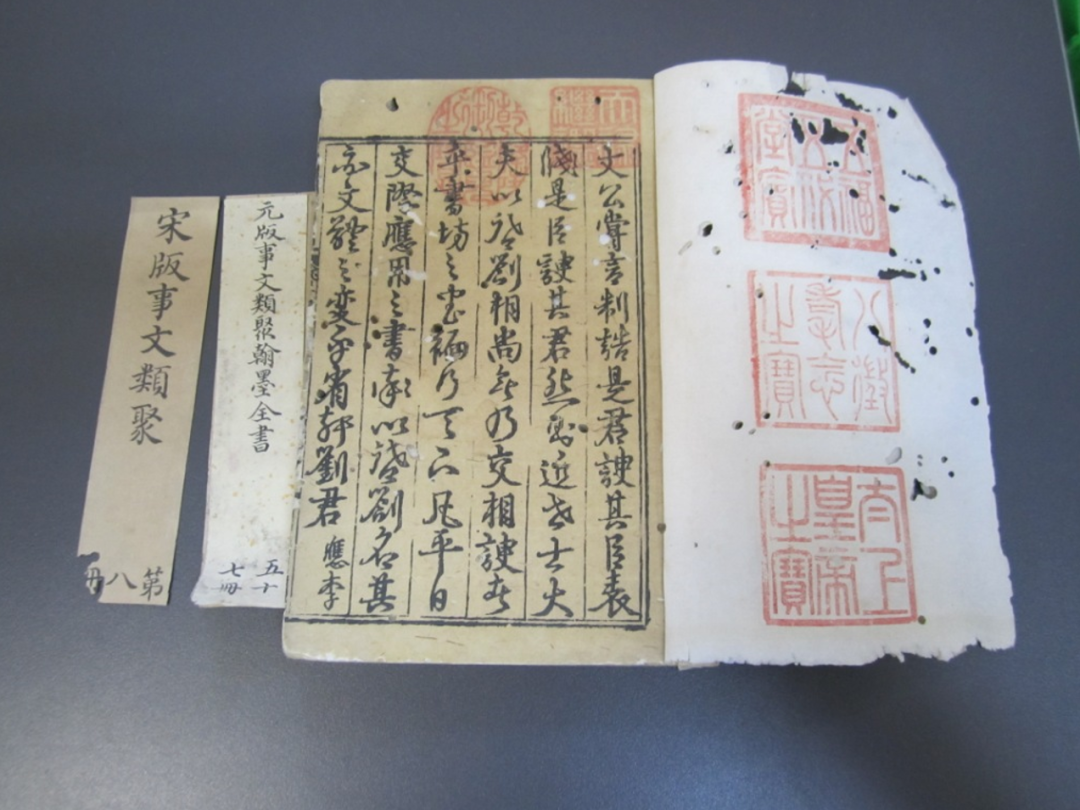 五福五代堂寶
八徵耄念之寶
太上皇帝之寶
天祿繼鑑
乾隆御覽之寶
文公嘗言制誥是君諛其臣表
牋是臣諛其君然則近世士大
夫以啓劄相尚無乃交相諛者
歟書坊之書徧行天下凡平日
交際應用之書例以啓劄名其
亦文體之變乎省軒劉君應李
元版事文類聚翰墨全書
五十
七冊
宋版事文類聚
第八冊